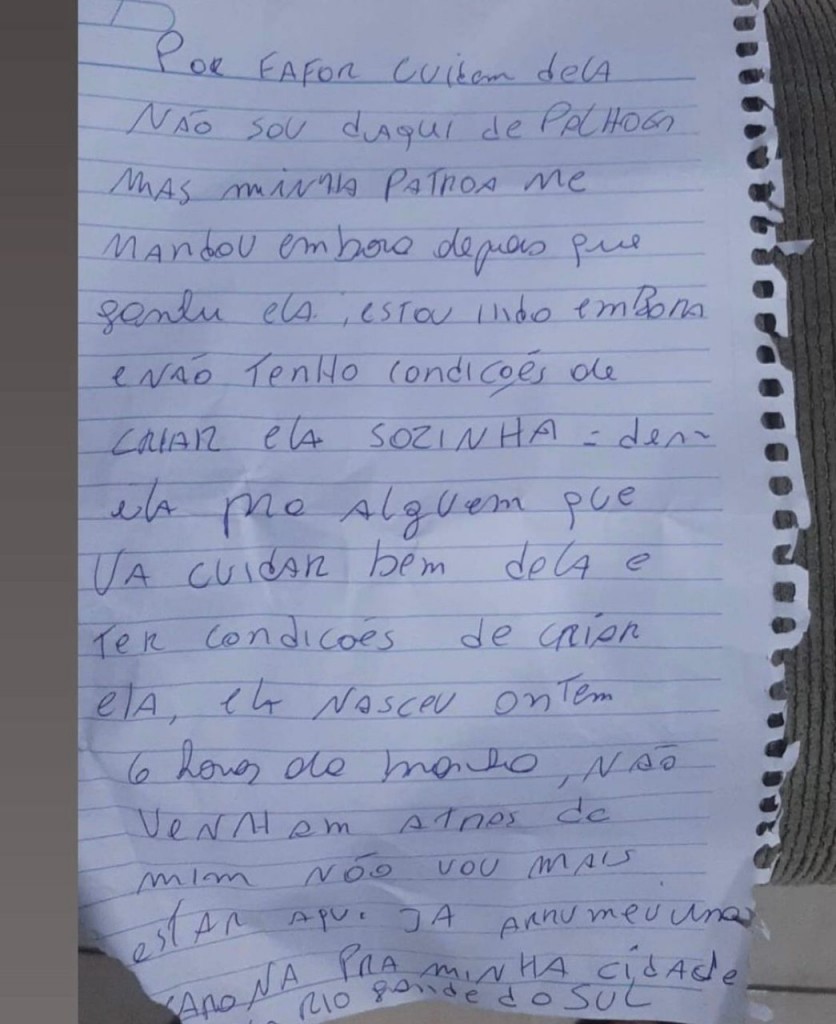 Por FAFOR CUidem delA
NÃO SOU dAqui de PALHOÇA
MAS MINHA PATROA Me
MANdOU embora depois que
ganhu elA, ESTOU indo emBora
e NÃO TenHo Condicoẽs de
CRIAR elA SOZINHA = dem
elA pro Alguem que
VA CUidAR bem delA e
Ter Condicoẽs de CRiAR
elA, elA NASCeu onTem
6 horas da manha, NÃO
VeNHAm ATRAS de
mim NÃO VOU MAIS
eSTAR AQUi JA ARRUmeu uma
CARONA PRA miNHA CidAde
RiO gande do SUL